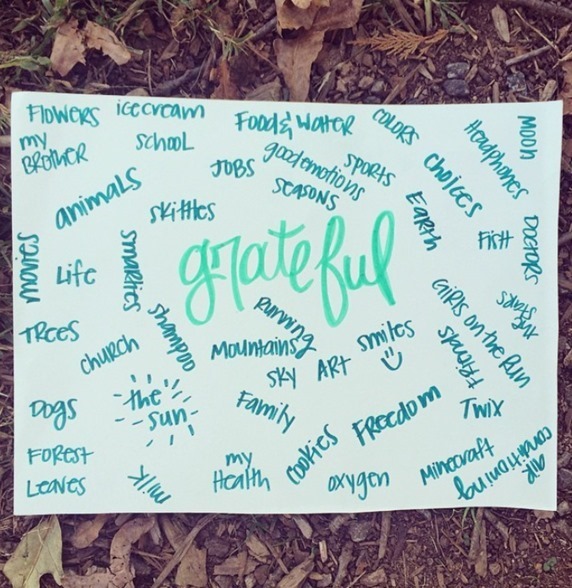 Flowers
icecream
Food & Water
Colors
Headphones
Moon
my
Brother
School
Jobs
good emotions
Sports
Choices
seasons
animals
skittles
Earth
Fish
Doctors
grateful
movies
Life
smarties
shampoo
Running
smiles
Girls on the Run
friends
Trees
church
Mountains
Sky
Art
Dogs
the
sun
Family
Freedom
Twix
Forest
Leaves
milk
my
Health
cookies
oxygen
Minecraft
air
conditioning